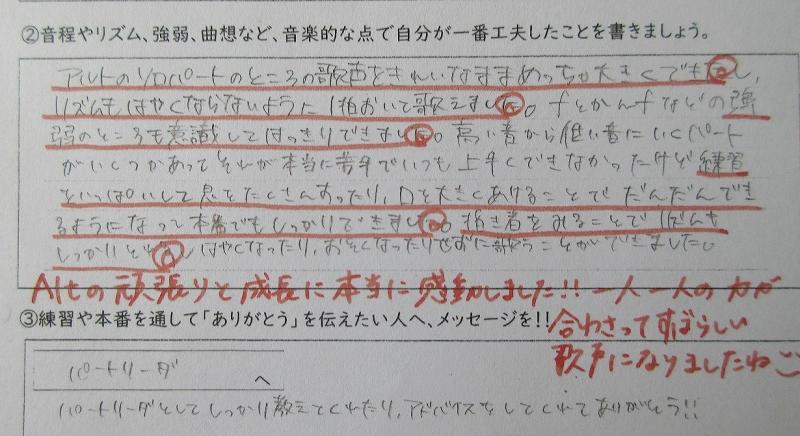 ②音程やリズム、強弱、曲想など、音楽的な点で自分が一番工夫したことを書きましょう。
アルトのソロパートのところの歌声をきれいなままめっちゃ大きくできたし、
リズムもはやくならないように1拍おいて歌えました。fとかmfなどの強
弱のところも意識してはっきりできました。高い音から低い音にいくパート
がいくつかあってそれが本当に苦手でいつも上手くできなかったけど練習
をいっぱいして息をたくさんすったり、口を大きくあけることでだんだんでき
るようになって本番でもしっかりできました。指き者をみることでリズムも
しっかりとれ はやくなったり、おそくなったりせずに歌うことができました。
Altの頑張りと成長に本当に感動しました!! 一人一人の力が
合わさってすばらしい
歌声になりましたね
③練習や本番を通して「ありがとう」を伝えたい人へ、メッセージを!!
パートリーダ へ
パートリーダとしてしっかり教えてくれたり、アドバイスをしてくれてありがとう!!